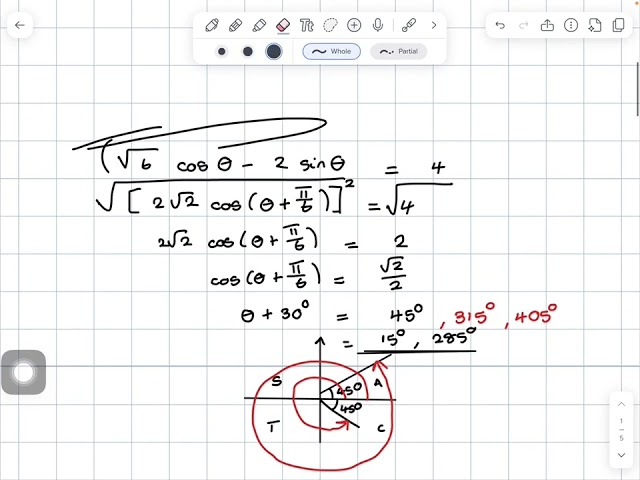 Tt
Whole
Partial
(√6 cos θ - 2 sin θ = 4
√[2√2 cos(θ + π/6)]² = √4
2√2 cos(θ + π/6) = 2
cos(θ + π/6) = √2/2
θ + 30° = 45°, 315°, 405°
= 15°, 285°
S
A
45°
45°
T
C
1
5